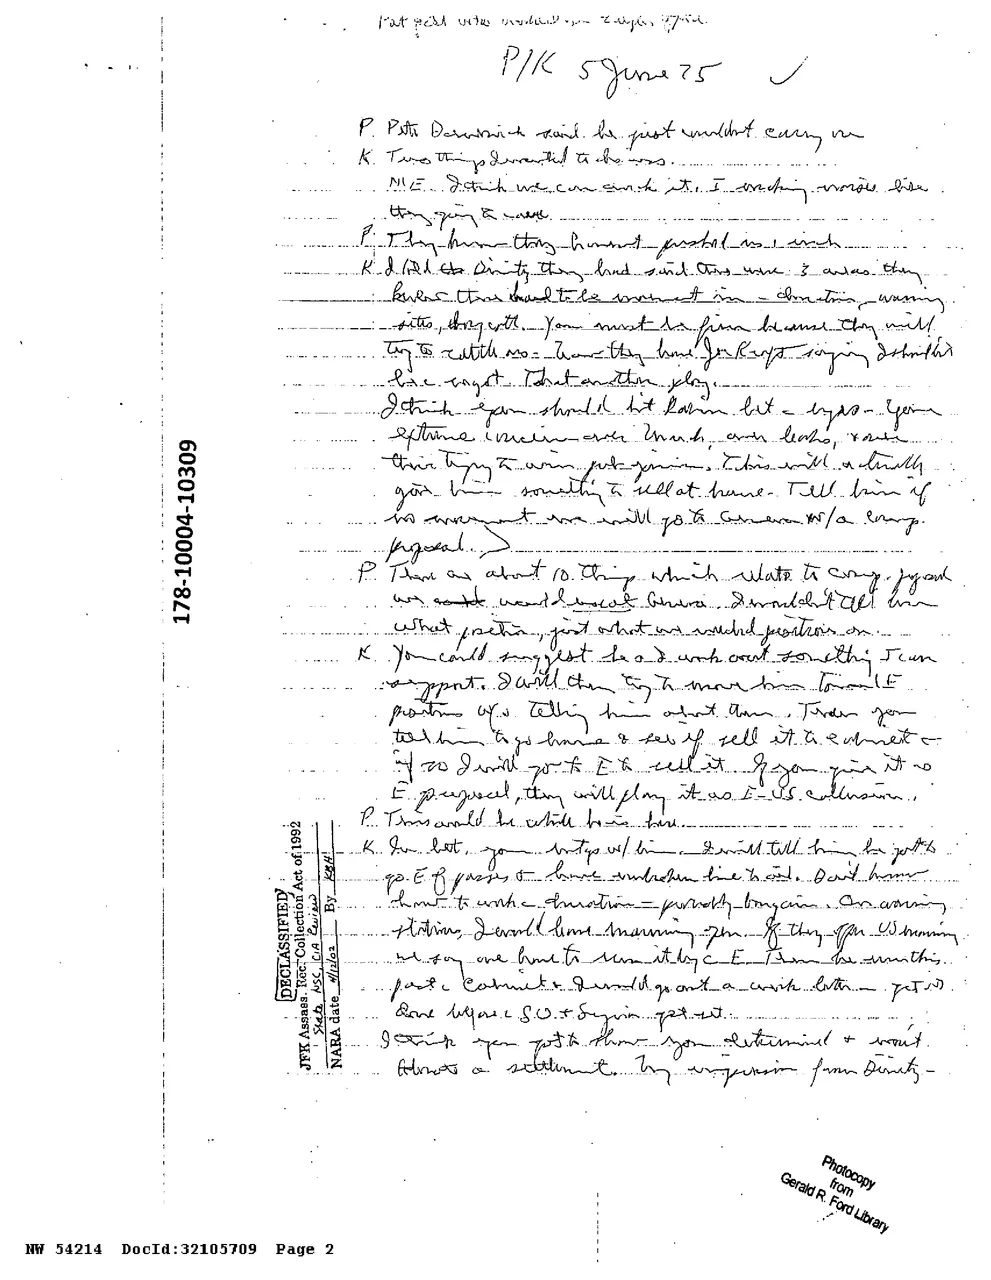 P/K 5 June 75 ✓
P. Pete said he just wouldn't carry on
K. Two things I wanted to discuss.
M.E. I think we can work it. I making noises like
they going to move.
P. They know they haven't pushed us 1 inch
K I told Dinitz they had said there were 3 areas they
knew there had to be movement in – duration, warning
sites, . You must be firm because they will
try to us – have they have Joe Kraft saying I shouldn't
be . That another ploy.
I think you should hit Rabin bet – eyes – Your
extreme concern over , over leaks, & over
their trying to . This will actually
give him something to sell at home. Tell him if
no movement we will go to Geneva w/a comp.
proposal.
P. There are about 10 things which relate to comp. proposal
we would Geneva. I wouldn't tell him
what position, just what we needed positions on.
K. You could suggest he & I work out something I can
support. I will then try to move him toward E
positions w/o telling him what them. Then you
tell him to go home & see if sell it to cabinet –
if so I will go to E to sell it. If you give it as
E proposal, they will play it as E-US collusion.
P. This would be while he is here.
K. In bet, your mtgs w/ him. I will tell him he got to
go E of passes & have unbroken line to oil. Don't know
how to work – duration – probably bargain. On warning
stations, I would leave manning open. If they offer US manning
we say one have to run it by E. Then he run this
past Cabinet & I would go out a week later – get it
done before SU & Syria get set.
I think you got to show you determined & won't
a settlement. My impression from Dinitz –
178-10004-10309
DECLASSIFIED
JFK Assass. Rec. Collection Act of 1992
State NSC CIA Review
NARA date 4/12/02 By KBH
Photocopy
from
Gerald R. Ford Library
NW 54214 DocId:32105709 Page 2